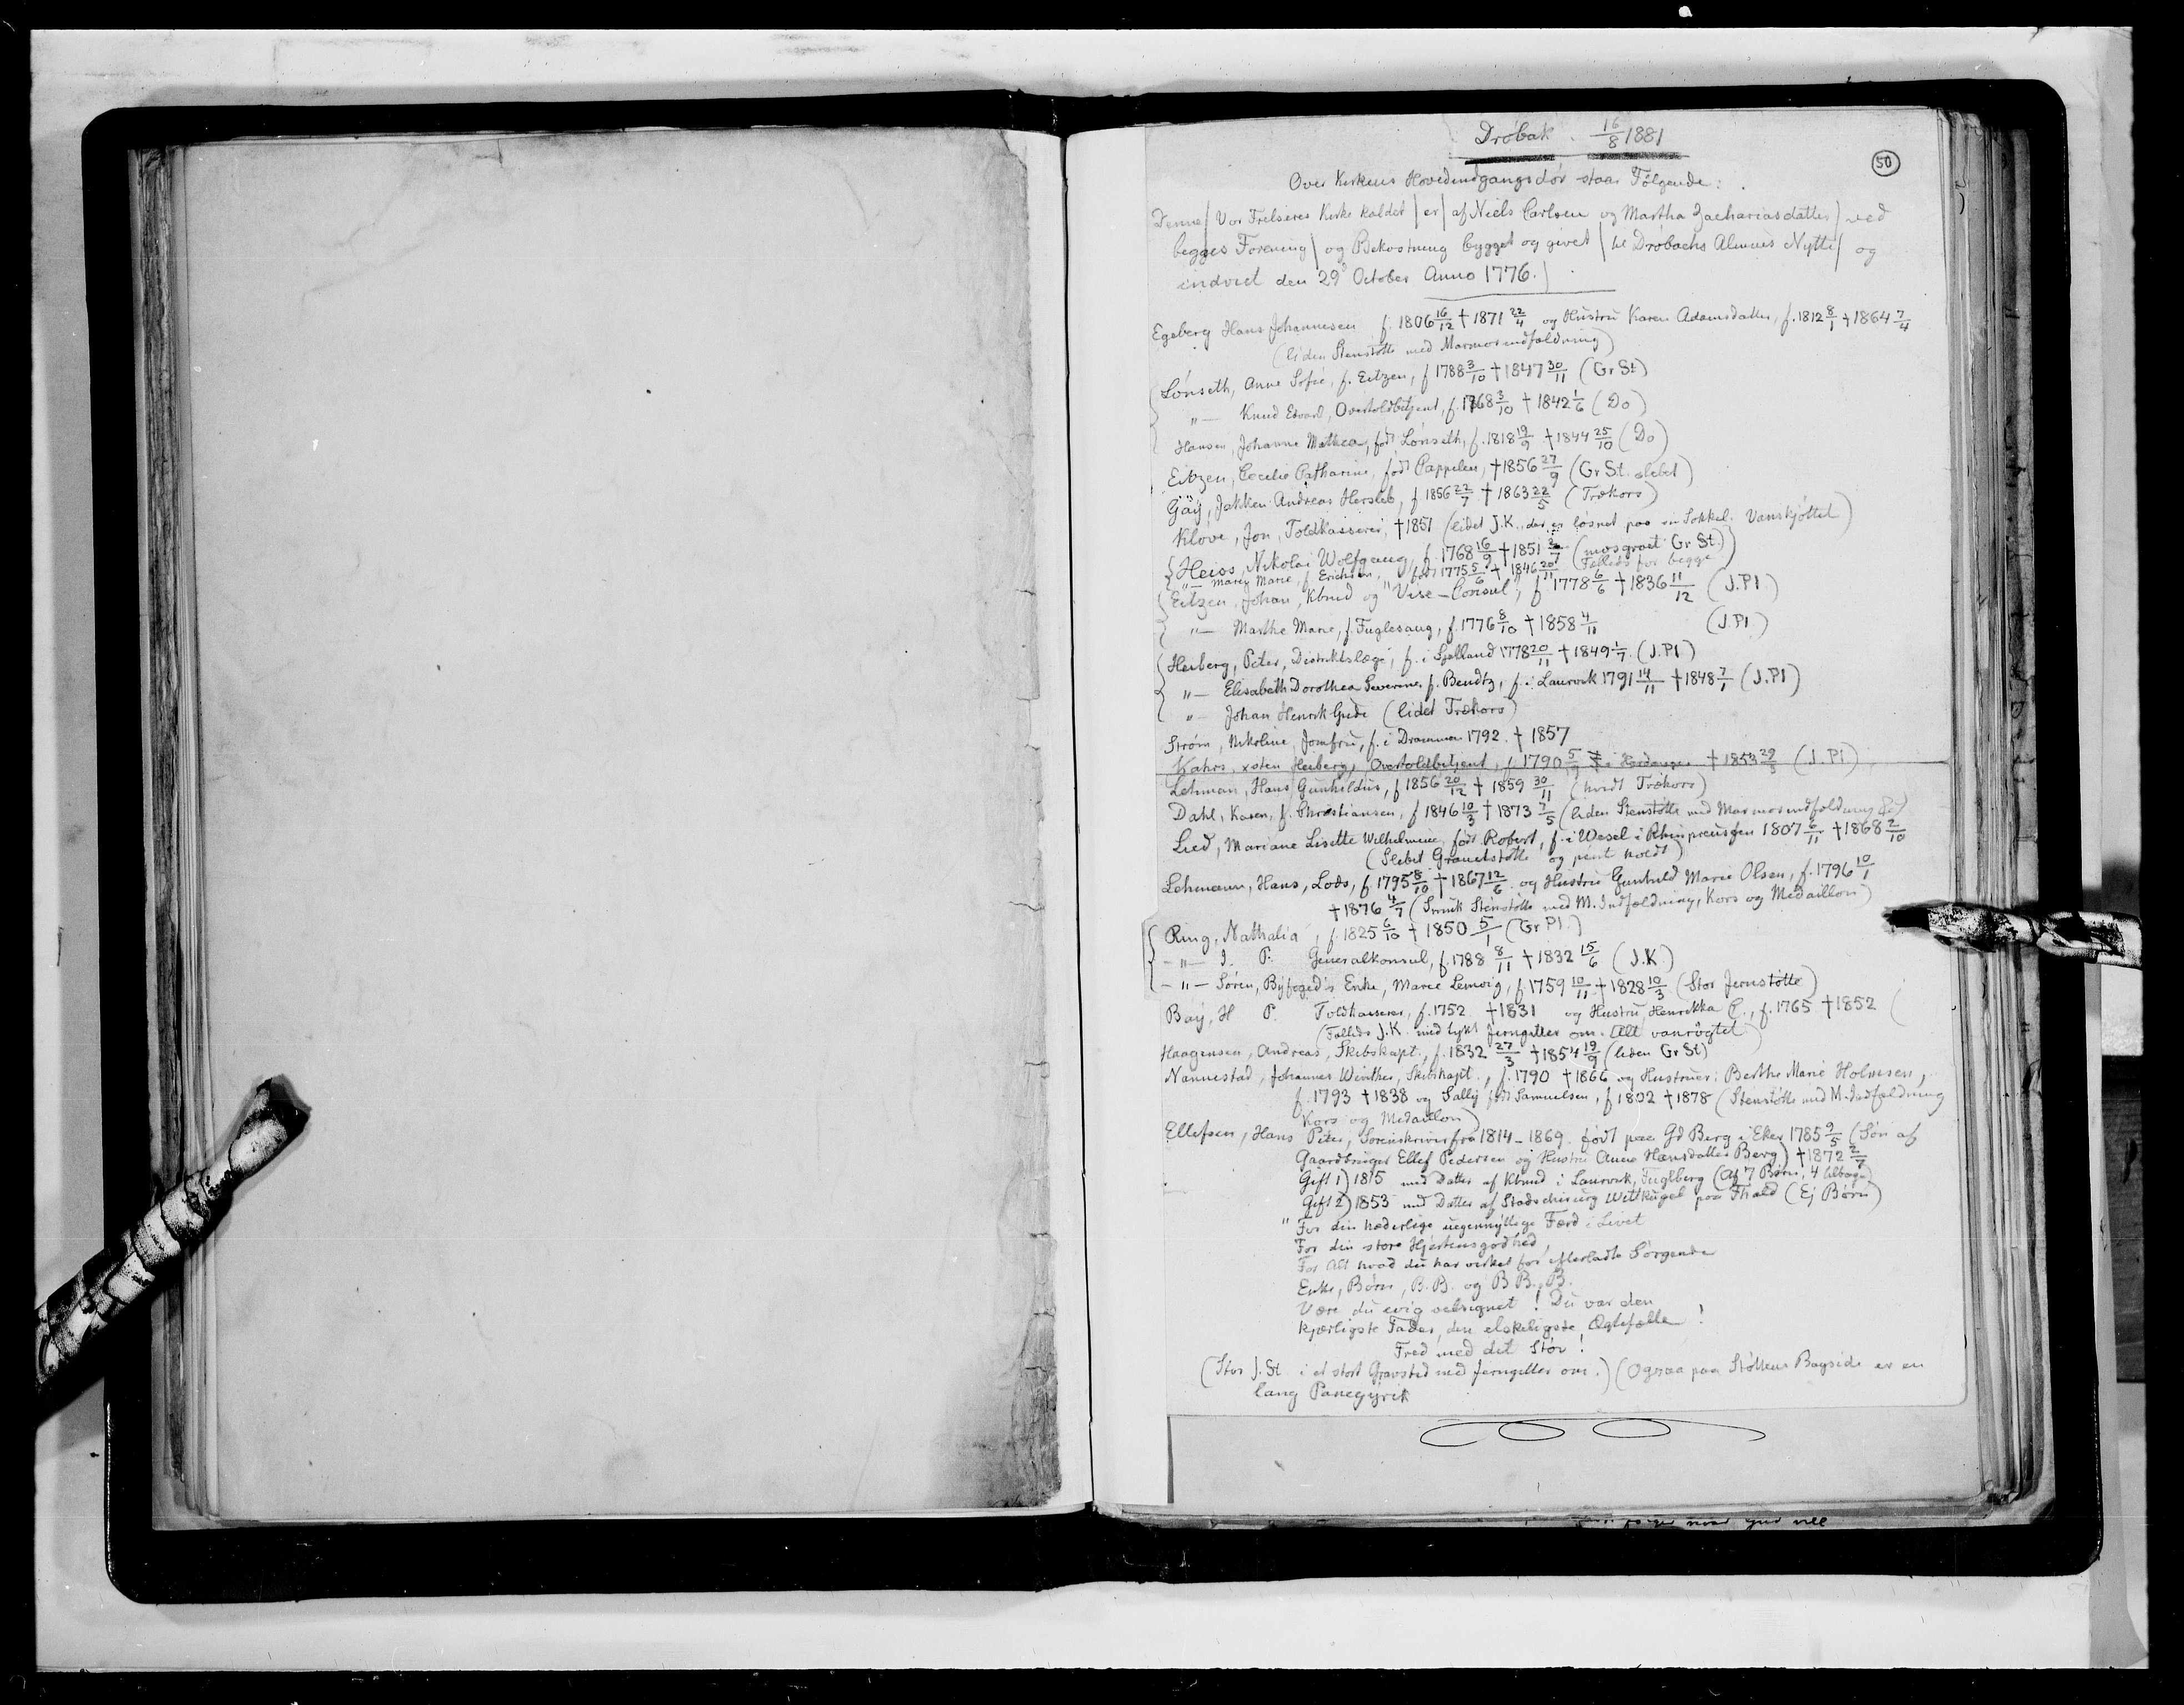 Drøbak. 16/8 1881
50
Over Kirkens Hovedindgangsdør staar Følgende:
Denne | Vor Frelseres Kirke kaldet | er | af Niels Carlsen og Martha Zachariasdatter | ved
begges Forening | og Bekostning bygget og givet | til Drøbachs Almues Nytte | og
indviet den 29de October Anno 1776. |
Egeberg Hans Johannesen f. 1806 16/12 † 1871 22/4 og Hustru Karen Adamsdatter, f. 1812 8/1 † 1864 7/4
(liden Stenstøtte med Marmorindfældning)
Lønseth, Anne Sofie, f. Eitzen, f 1788 3/10 † 1847 30/11 (Gr St)
"— Knud Edvard, Overtoldbetjent, f. 1768 3/10 † 1842 1/6 (Do)
Hansen, Johanne Mathea, født Lønseth, f. 1818 19/9 † 1844 25/10 (Do)
Eitzen, Cecilie Catharine, født Cappelen, † 1856 27/9 (Gr St. slebet)
Gäÿ, Jakken Andreas Hersleb, f 1856 22/7 † 1863 22/5 (Trækors)
Kløve, Jon, Toldkasserer, † 1851 (lidet J.K., der er løsnet paa sin Sokkel. Vanskjøttet)
Heiss, Nikolai Wolfgang, f. 1768 16/9 † 1851 /7 (mosgroet Gr St.)
"— Maren Marie, f. Erichsen, født 1775 5/6 † 1846 20/11 (Fælleds for begge
Eitzen, Johan, Kbmd og "Vise-Consul", f 1778 6/6 † 1836 11/12 (J.Pl)
"— Marthe Marie, f. Fuglesang, f. 1776 8/10 † 1858 4/11 (J.Pl.)
Heiberg, Peter, Distriktslæge, f. i Sjælland 1778 20/11 † 1849 1/7. (J.Pl)
"— Elisabeth Dorothea Severine f. Bendtz, f. i Laurvik 1791 14/11 † 1848 7/1 (J.Pl)
"— Johan Henrik Gude (lidet Trækors)
Strøm, Nikoline, Jomfru, f. i Drammen 1792. † 1857
Kahrs, xsten Heiberg, Overtoldbetjent, f 1790 5/9 i Hardanger † 1853 29/3 (J.Pl)
Lehman, Hans Gunhildius, f 1856 20/12 † 1859 30/11 (hvidt Trækors)
Dahl, Karen, f. Christiansen, f 1846 10/3 † 1873 7/5 (liden Stenstøtte med Marmorindfældning
Lied, Mariane Lisette Wilhelmine, født Robert, f. i Wesel i Rhinpreussen 1807 6/11 † 1868 2/10
(Slebet Granitstøtte og pent holdt)
Lehmann, Hans, Lods, f. 1795 8/10 † 1867 12/6. og Hustru Gunhild Marie Olsen, f. 1796 10/1
† 1876 4/7 (Smuk Stenstøtte med M. Indfældning, Kors og Medaillon)
Ring, Nathalia, f. 1825 6/10 † 1850 5/1 (Gr Pl.)
—"— J. P. Generalkonsul, f. 1788 8/11 † 1832 15/6 (J.K.)
—"— Søren, Byfogeds Enke, Marie Lemvig, f 1759 10/11 † 1828 10/3 (Stor Jernstøtte)
Baÿ, H P. Toldkasserer, f. 1752 † 1831 og Hustru Henrikka C., f. 1765 † 1852 (
(Fælleds J.K. med tykt Jerngitter om. Alt vanrøgtet)
Haagensen, Andreas, Skibskapt., f. 1832 27/3 † 1854 19/9 (liden Gr St)
Nannestad, Johannes Winther, Skibskapt., f. 1790 † 1866 og Hustruer: Berthe Marie Holmsen,
f. 1793 † 1838 og Sally født Samuelsen, f 1802 † 1878 (Stenstøtte med M-Indfældning
Kors og Medaillon)
Ellefsen, Hans Peter, Sorenskriver fra 1814-1869. født paa Gd Berg i Eker 1785 9/5 (Søn af
Gaardbruger Ellef Pedersen og Hustru Anne Hansdatter Berg) † 1872 2/7
Gift 1) 1815 med Datter af Kbmd i Laurvik, Fuglberg (Af 7 Børn, 4 tilbage)
Gift 2) 1853 med Datter af Stadschirurg Wittkugel paa Fhald (Ej Børn)
"For din hæderlige uegennyttige Færd i Livet
For din store Hjertensgodhed,
For Alt hvad du har virket for efterladte Sørgende
Enke, Børn, B.B. og B.B.B.
Være du evig velsignet! Du var den
kjærligste Fader, den elskeligste Ægtefælle!
Fred med dit Støv!
(Stor J. St. i et stort Gravsted med Jerngitter om.) (Ogsaa paa Støttens Bagside er en
lang Panegyrik